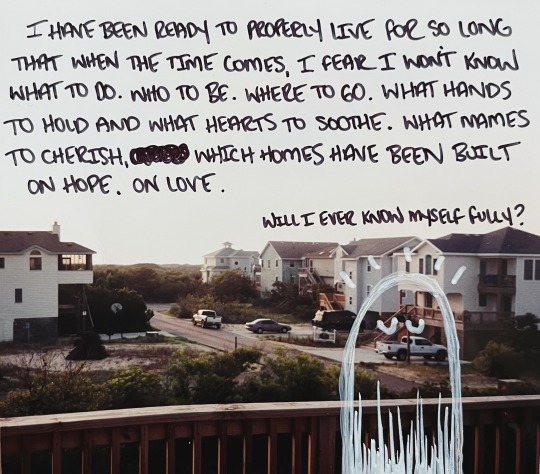 I HAVE BEEN READY TO PROPERLY LIVE FOR SO LONG
THAT WHEN THE TIME COMES, I FEAR I WON'T KNOW
WHAT TO DO. WHO TO BE. WHERE TO GO. WHAT HANDS
TO HOLD AND WHAT HEARTS TO SOOTHE. WHAT NAMES
TO CHERISH, WHICH HOMES HAVE BEEN BUILT
ON HOPE. ON LOVE.
WILL I EVER KNOW MYSELF FULLY?